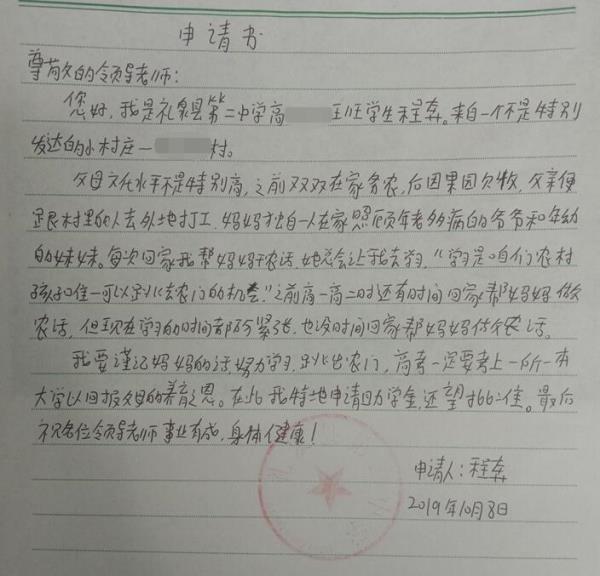 申请书
尊敬的领导老师:
您好,我是礼泉县第二中学高 班学生程奔。来自一个不是特别
发达的小村庄一 村。
父母文化水平不是特别高,之前双双在家务农,后因果园欠收,父亲便
跟村里的人去外地打工,妈妈独自一人在家照顾年老多病的爷爷和年幼
的妹妹。每次回家我帮妈妈干农活,她总会让我去学习,“学习是咱们农村
孩子唯一可以跳出农门的机会”之前高一高二时还有时间回家帮妈妈做
农活,但现在学习的时间都很紧张,也没时间回家帮妈妈做农活。
我要谨记妈妈的话努力学习,跳出农门,高考一定要考上一所一本
大学以回报父母的养育之恩。在此我特地申请助学金,还望批准。最后
祝各位领导老师事业有成,身体健康!
申请人:程奔
2019年10月8日